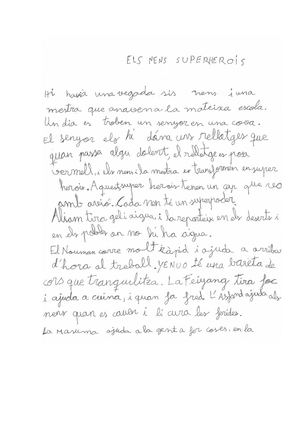 ELS NENS SUPERHEROIS
Hi havia una vegada sis nens i una
mestra que anaven a la mateixa escola.
Un dia es troben un senyor en una cova.
El senyor els hi dóna uns rellatges que
quan passa algu dolent, el rellatge es posa
vermell, i els nens i la mestra es transformen en super
herois. Aquest super herois tenen un que
amb assió. Cada nen té un superpoder
Aliom tira gel i aigua, i la reparteix en els deserts i
en els pobles on no hi ha aigua.
El Nouman corre molt ràpid i ajuda a arribar
d'hora al treball. YENUO té una bareta de
cors que tranquilitza. La Feiyang tira foc
i ajuda a cuina, i quan fa fred. L'Asfand ajuda als
nens quan es cauen i li cura les ferides.
La Masuma ajuda a la gent a fer coses. en la